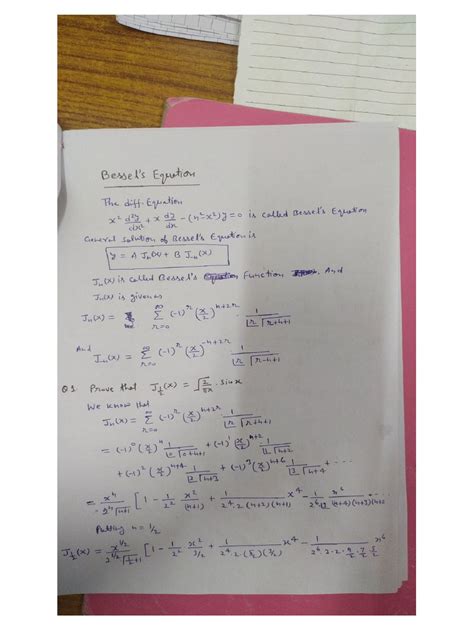 Bessel's Equation
The diff. Equation
x² d²y/dx² + x dy/dx - (n²-x²)y = 0 is called Bessel's Equation
General solution of Bessel's Equation is
y = A Jn(x) + B J-n(x)
Jn(x) is called Bessel's Function And
Jn(x) is given as
Jn(x) = ∞ Σ r=0 (-1)^r (x/2)^n+2r 1/(⌊r √r+n+1)
And
J-n(x) = ∞ Σ r=0 (-1)^r (x/2)^-n+2r 1/(⌊r √r-n+1)
Q1 Prove that J½(x) = √(2/πx) . sin x
We know that
Jn(x) = ∞ Σ r=0 (-1)^r (x/2)^n+2r 1/(⌊r √r+n+1)
= (-1)^0 (x/2)^n 1/(√0+n+1) + (-1)^1 (x/2)^n+2
+ (-1)^2 (x/2)^n+4 1/(⌊2 √n+3) + (-1)^3 (x/2)^n+6 1/(⌊3 √n+4) + ...
= x^n/(2^n √n+1) [1 - 1/2² x²/(n+1) + 1/(2^4.2(n+2)(n+1)) x^4 -
Putting n = 1/2
J½(x) = x^½/(2^½ √½+1) [1 - 1/2² . x²/(3/2) + 1/(2^4.2.(5/2)(3/2)) x^4 -